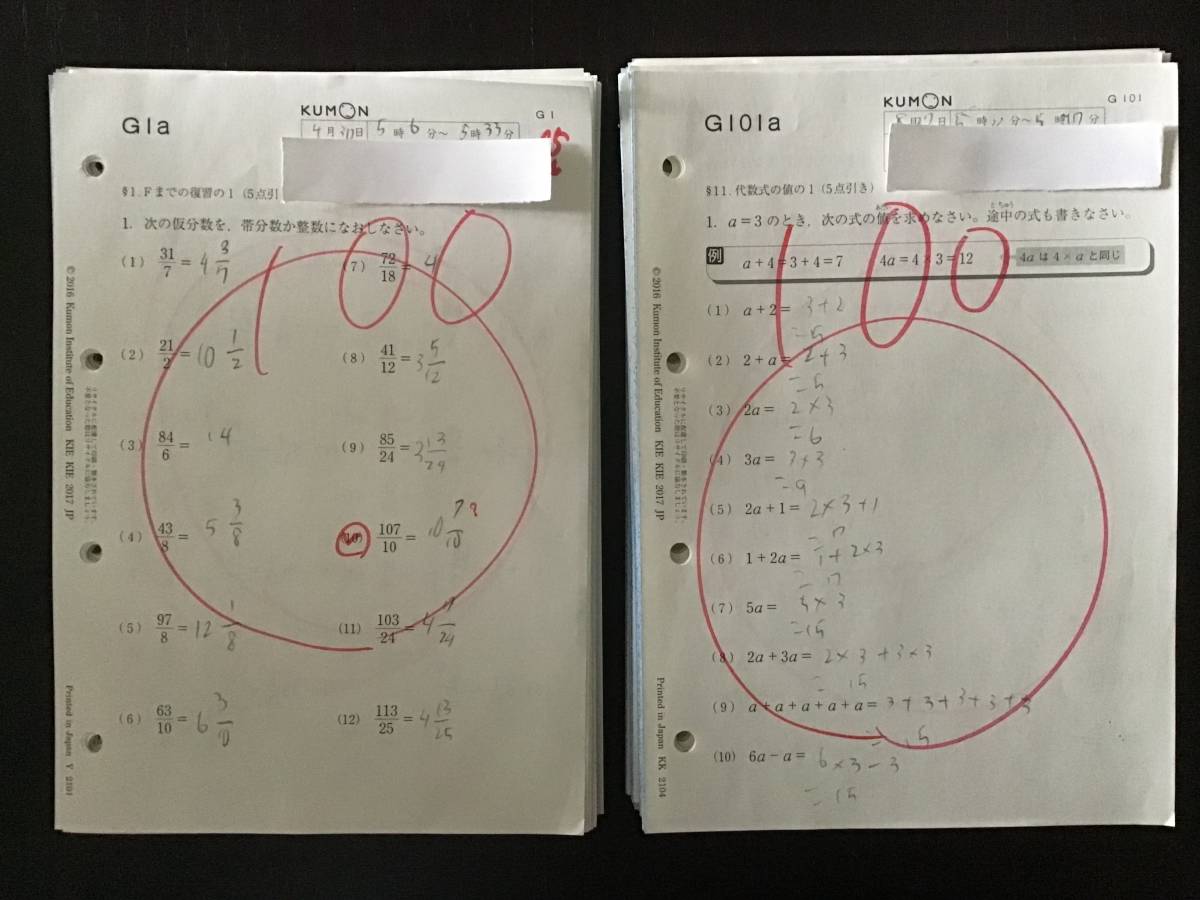 KUMON
G 1
G1a
4月30日 5時6分～5時33分
§1. Fまでの復習の1（5点引
1. 次の仮分数を，帯分数か整数になおしなさい。
(1) 31/7 = 4 3/7
(2) 21/2 = 10 1/2
(3) 84/6 = 14
(4) 43/8 = 5 3/8
(5) 97/8 = 12 1/8
(6) 63/10 = 6 3/10
(7) 72/18 = 4
(8) 41/12 = 3 5/12
(9) 85/24 = 3 13/24
(10) 107/10 = 10 7/10
(11) 103/24 = 4 7/24
(12) 113/25 = 4 13/25
100
© 2016 Kumon Institute of Education KIE KIE 2017 JP
Printed in Japan Y 2104
KUMON
G 101
G101a
§11. 代数式の値の1（5点引き）
1. a＝3のとき，次の式の値を求めなさい。途中の式も書きなさい。
例 a＋4＝3＋4＝7 4a＝4×3＝12 4aは4×aと同じ
(1) a＋2＝ 3+2
=5
(2) 2＋a＝ 2+3
=5
(3) 2a＝ 2×3
=6
(4) 3a＝ 3×3
=9
(5) 2a＋1＝ 2×3+1
=7
(6) 1＋2a＝ 1+2×3
=7
(7) 5a＝ 5×3
=15
(8) 2a＋3a＝ 2×3+3×3
=15
(9) a＋a＋a＋a＋a＝ 3+3+3+3+3
=15
(10) 6a－a＝ 6×3-3
=15
100
© 2016 Kumon Institute of Education KIE KIE 2017 JP
Printed in Japan KK 2104